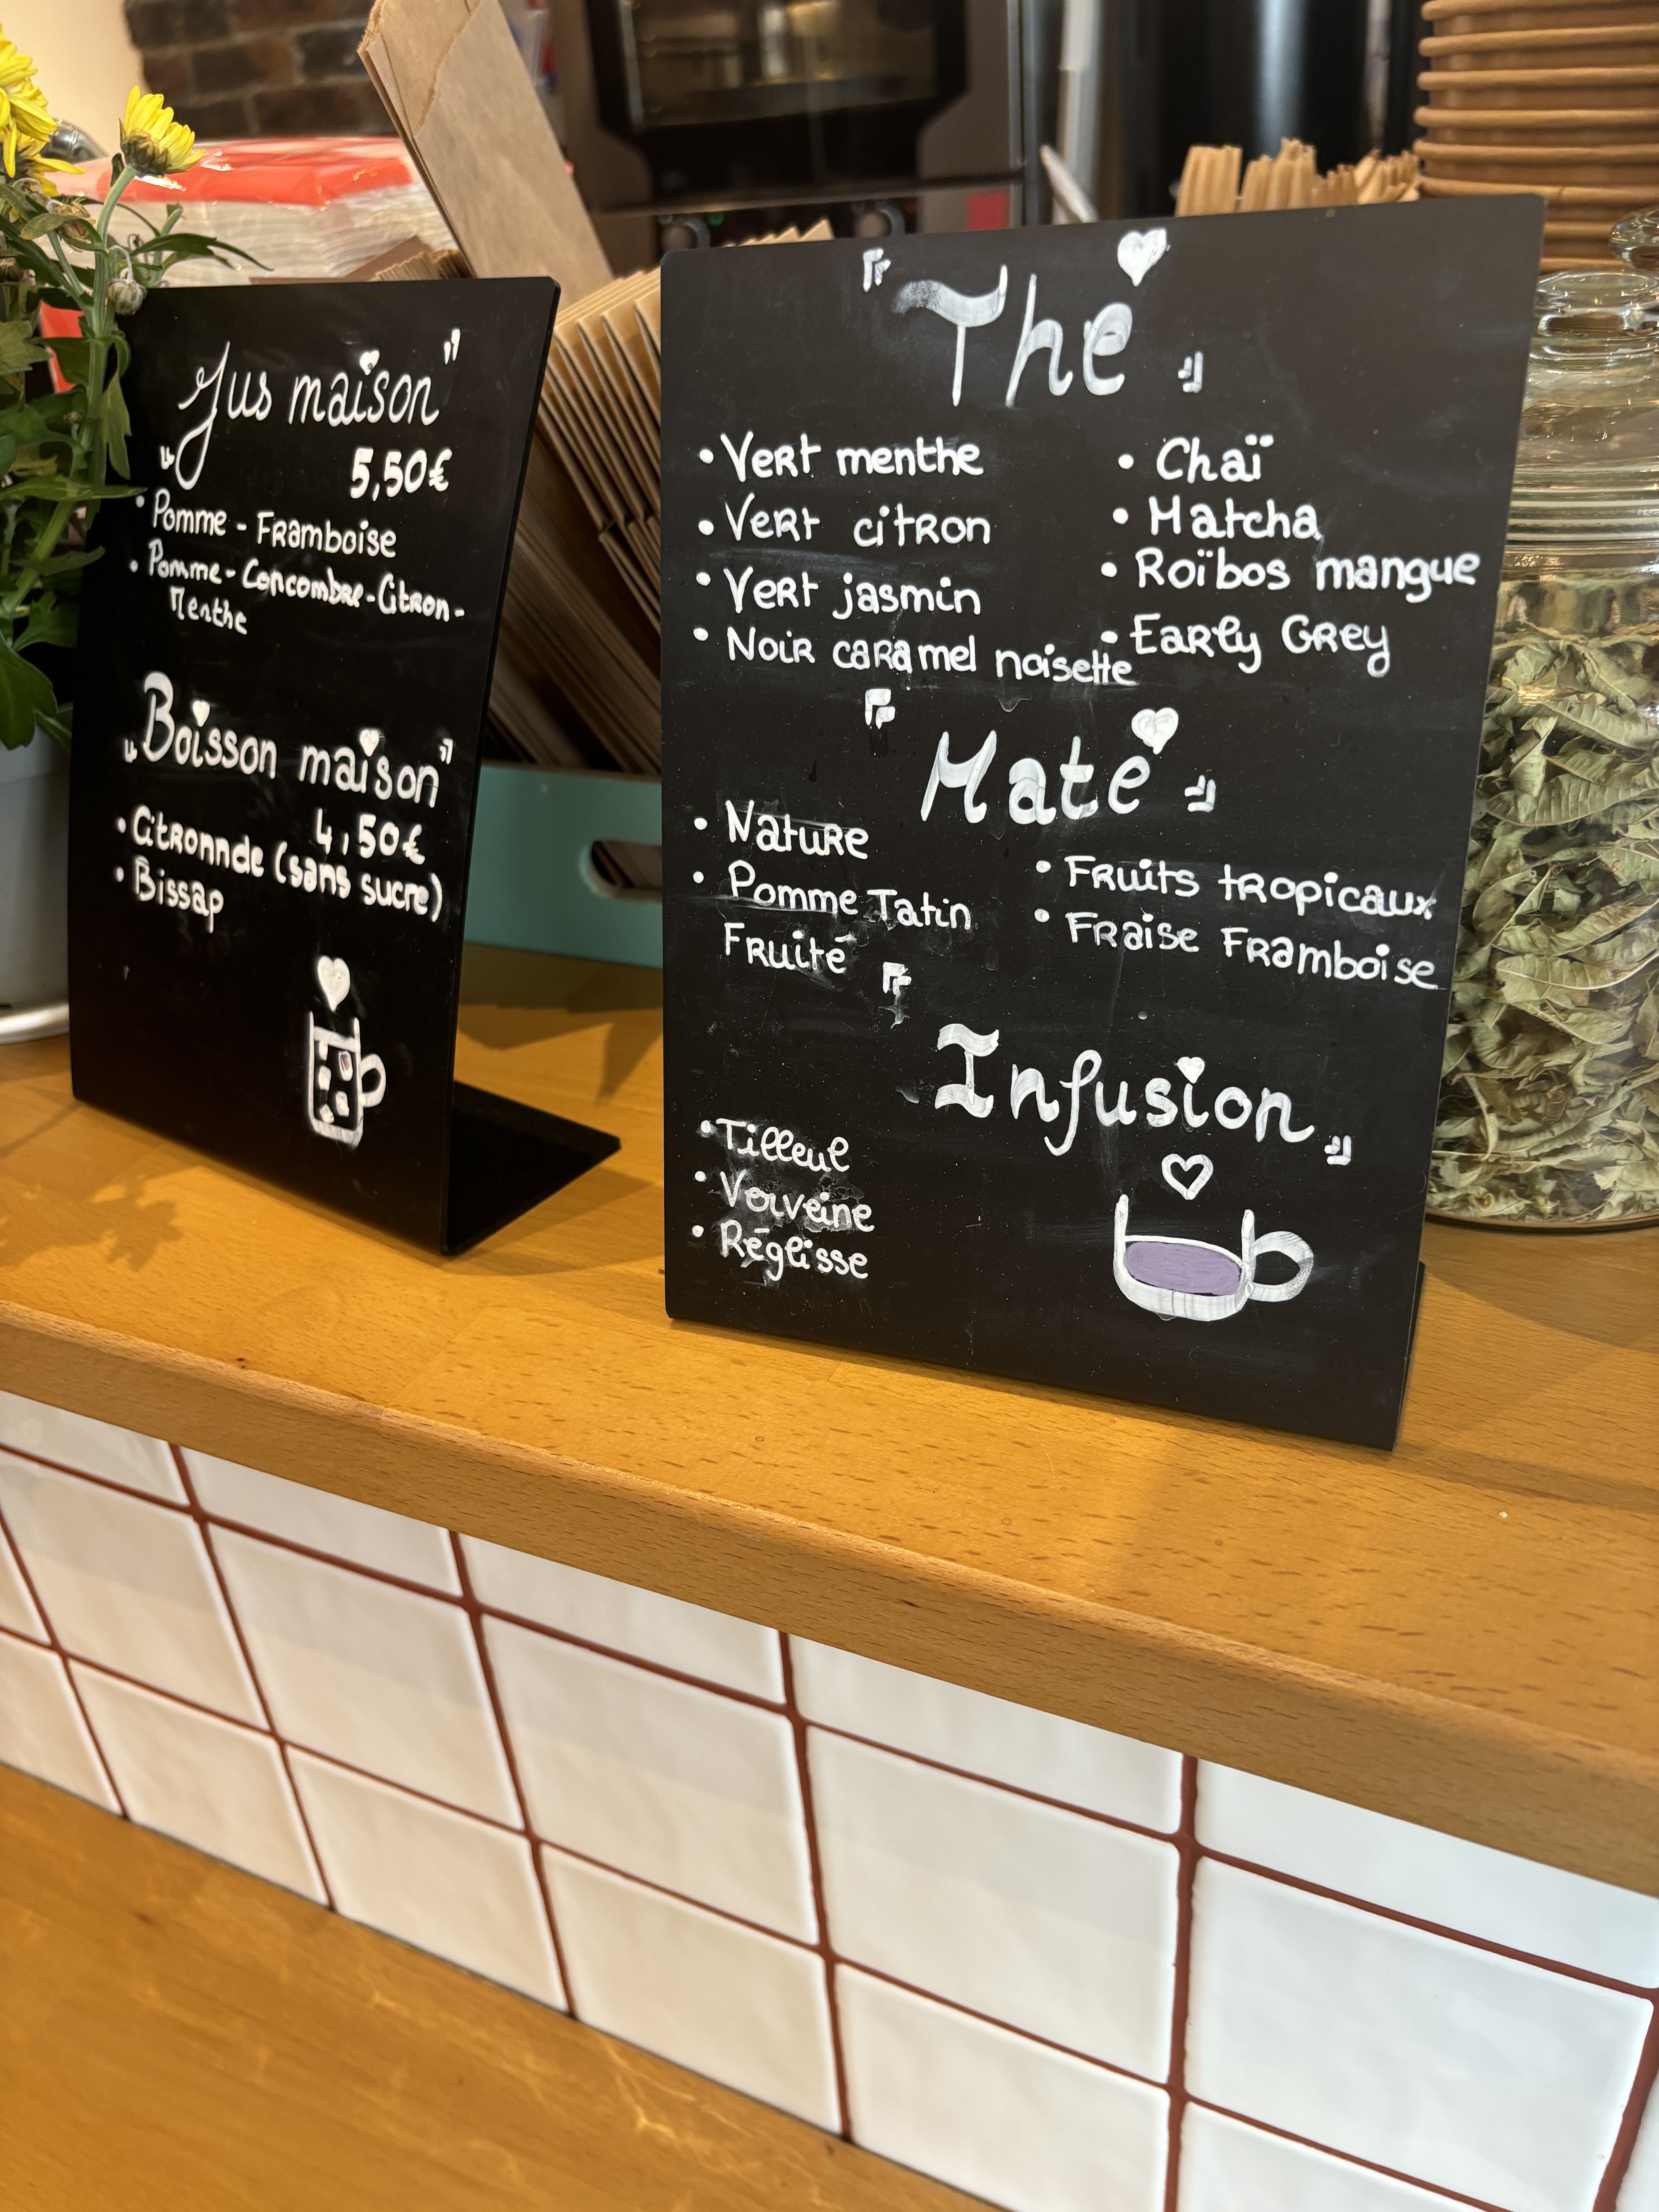 Jus maison
5,50€
• Pomme - Framboise
• Pomme - Concombre - Citron -
Menthe
Boisson maison
4,50€
• Citronnde (sans sucre)
• Bissap
Thé
• Vert menthe
• Vert citron
• Vert jasmin
• Noir caramel noisette
• Chaï
• Matcha
• Roïbos mangue
• Early Grey
Maté
• Nature
• Pomme Tatin
Fruité
• Fruits tropicaux
• Fraise Framboise
Infusion
• Tilleul
• Verveine
• Réglisse